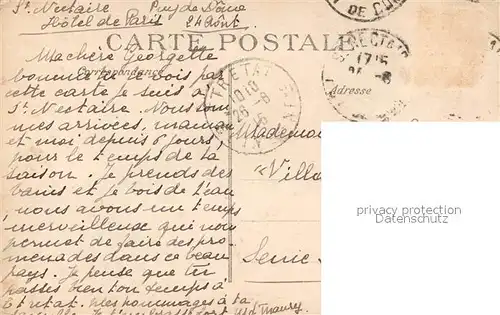 St. Nectaire Puy de Dôme
Hôtel de Paris 24 Août
CARTE POSTALE
Correspondance
Adresse
Ma chère Georgette
comme tu le vois par
cette carte je suis à
St. Nectaire. Nous som
mes arrivées, maman
et moi depuis 6 jours,
pour le temps de la
saison. Je prends des
bains et je bois de l'eau
nous avons un temps
merveilleux qui nous
permet de faire des pro
menades dans ce beau
pays. Je pense que tu
passes bien ton temps à
Etretat. Mes hommages à ta
famille. Je t'embrasse fort
Mademoi
"Villa
Seine-
ETRETAT
SEINE
privacy protection
Datenschutz